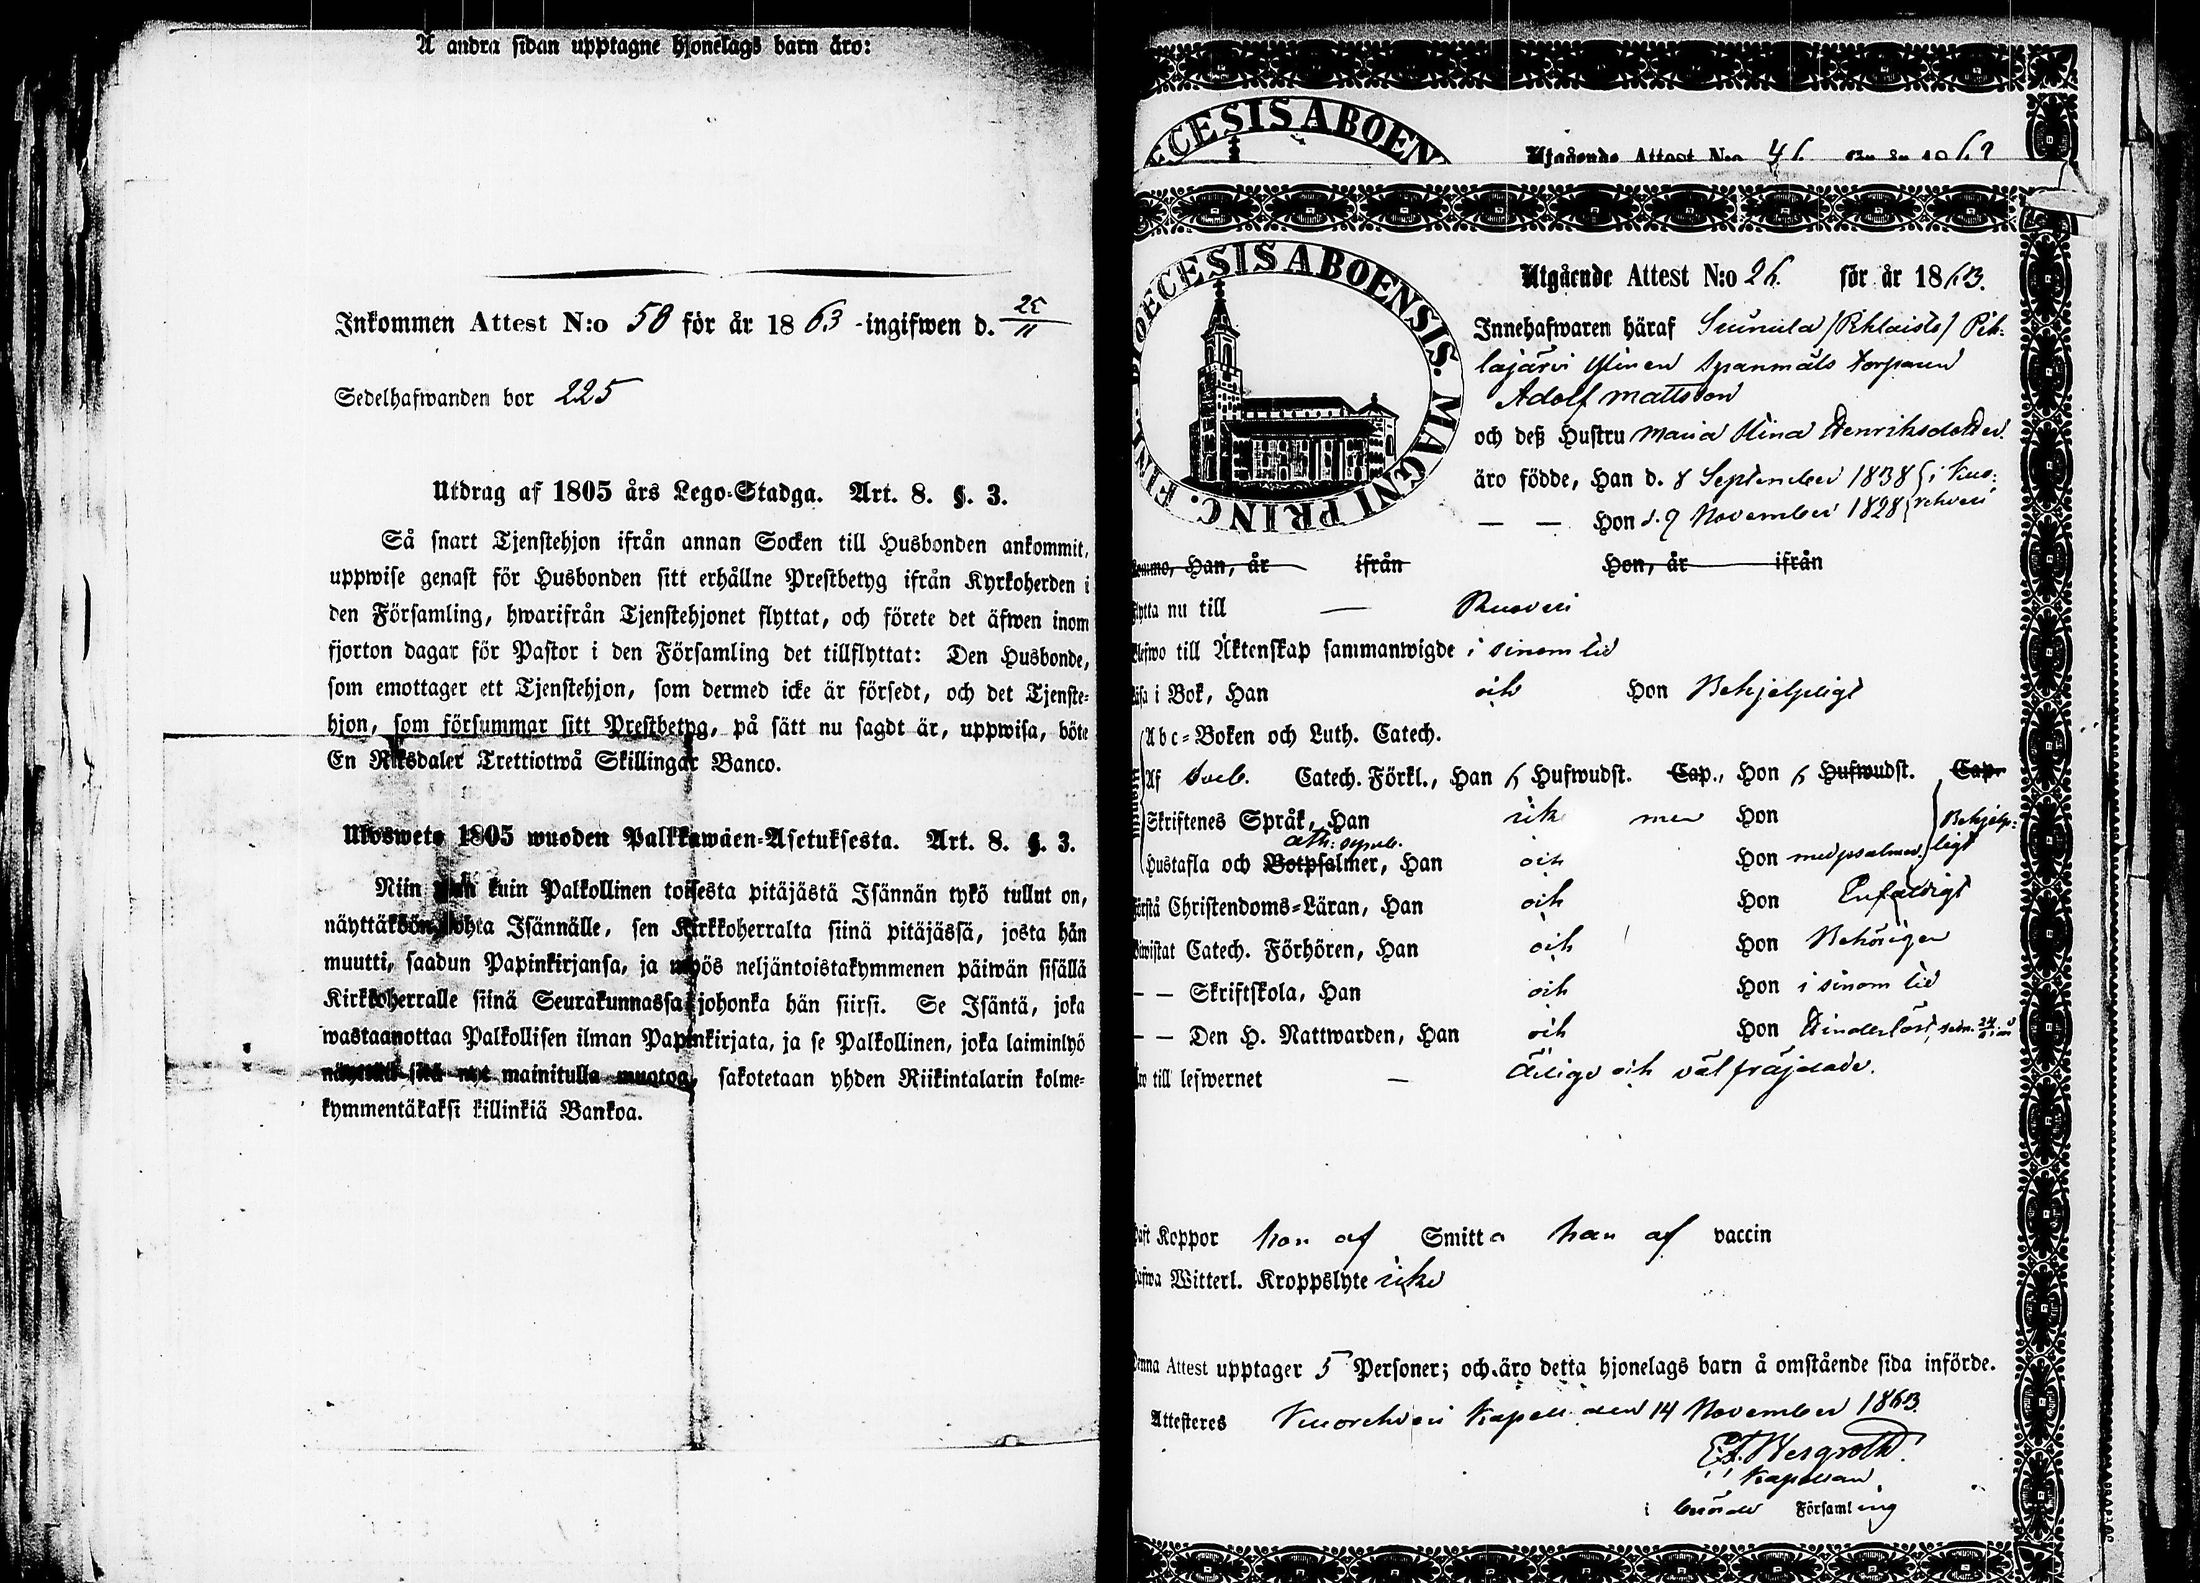 Å andra sidan upptagne hjonelags barn äro:
Inkommen Attest N:o 58 för år 1863 ingifwen d. 25/11
Sedelhafwanden bor 225
Utdrag af 1805 års Lego-Stadga. Art. 8. §. 3.
Så snart Tjenstehjon ifrån annan Socken till Husbonden ankommit,
uppwise genast för Husbonden sitt erhållne Prestbetyg ifrån Kyrkoherden i
den Församling, hwarifrån Tjenstehjonet flyttat, och förete det äfwen inom
fjorton dagar för Pastor i den Församling det tillflyttat: Den Husbonde,
som emottager ett Tjenstehjon, som dermed icke är försedt, och det Tjenste-
hjon, som försummar sitt Prestbetyg, på sätt nu sagdt är, uppwisa, böte
En Riksdaler Trettiotwå Skillingar Banco.
Ulosweto 1805 wuoden Palkkawäen-Asetuksesta. Art. 8. §. 3.
Niin kuin Palkollinen toisesta pitäjästä Isännän tykö tullut on,
näyttäköön kohta Isännälle, sen Kirkkoherralta siinä pitäjässä, josta hän
muutti, saadun Papinkirjansa, ja myös neljäntoistakymmenen päiwän sisällä
Kirkkoherralle siinä Seurakunnassa johonka hän siirsi. Se Isäntä, joka
wastaanottaa Palkollisen ilman Papinkirjata, ja se Palkollinen, joka laiminlyö
näyttää sitä nyt mainitulla muotoa, sakotetaan yhden Riikintalarin kolme-
kymmentäkaksi killinkiä Bankoa.
ECESIS ABOEN
Utgående Attest N:o 46 för år 186
DIOECESIS ABOENSIS. MAGNI PRINC. FINL.
Utgående Attest N:o 26. för år 1863.
Innehafwaren häraf
Spanmåls torparen
Adolf Mattsson
och deß Hustru Maria Stina Henriksdotter
äro födde, Han d. 8 September 1838 i Kuo-
— — Hon d. 9 November 1828 rehveri
Komme, Han, år ifrån Hon, år ifrån
Flytta nu till — Rusveri
Blefwo till Äktenskap sammanwigde i sinom tid
Läsa i Bok, Han och Hon Behjelpligt
Abc-Boken och Luth. Catech.
Af Sveb. Catech. Förkl., Han 6 Hufwudst. Cap., Hon 6 Hufwudst. Cap.
Skriftenes Språk, Han icke men Hon Behjelp-
Ath: symb.
Hustafla och Botpsalmer, Han och Hon med psalmer. ligt
Förstå Christendoms-Läran, Han och Hon Enfaldigt
Biwistat Catech. Förhören, Han och Hon Behörigen
— — Skriftskola, Han och Hon i sinom tid
— — Den H. Nattwarden, Han och Hon Hinderlöst,
Äro till lefwernet — Ärliga och väl fräjdade.
Haft Koppor hon af Smitta han af vaccin
Hafwa Witterl. Kroppslyte icke
Denna Attest upptager 5 Personer; och äro detta hjonelags barn å omstående sida införde.
Attesteres Kuorehveri Kapell den 14 November 1863.
Kapellan
i berörde Församling